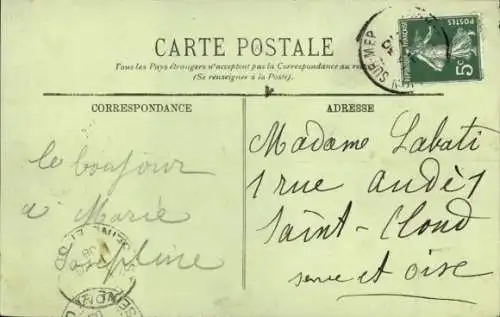 CARTE POSTALE
Tous les Pays étrangers n'acceptent pas la Correspondance au
(Se renseigner à la Poste).
POSTES
5c
SUR-MER
CORRESPONDANCE
ADRESSE
le bonjour
à Marie
Joséphine
Madame Labati
1 rue
Saint-Cloud
Seine et Oise
SEINE ET O